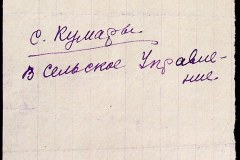 с. Кумары.
в Сельское Управле-
ние.